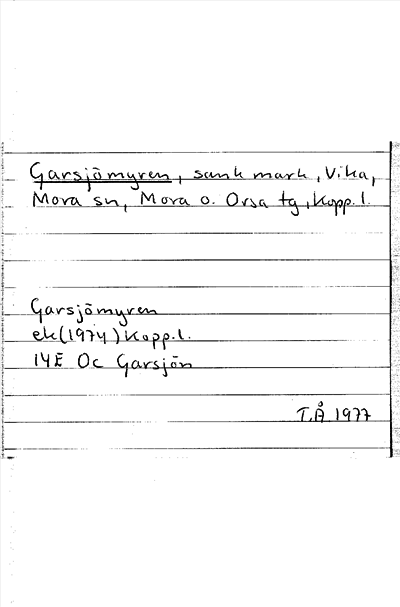 Garsjömyren, sank mark, Vika,
Mora sn, Mora o. Orsa tg, Kopp. l.
Garsjömyren
ek (1974) Kopp. l.
14E 0c Garsjön
T.Å 1977